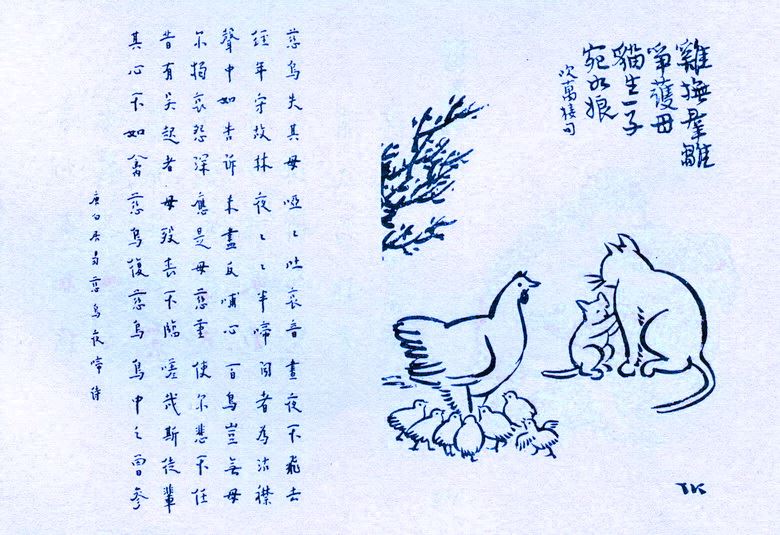 雞撫羣雛
爭護母
貓生一子
宛如娘
吹萬樓句
TK
慈烏失其母 啞々吐哀音 晝夜不飛去
經年守故林 夜々々半啼 聞者為沾襟
聲中如告訴 未盡反哺心 百鳥豈無母
尔獨哀怨深 應是母慈重 使尔悲不任
昔有吳起者 母歿喪不臨 嗟哉斯徒輩
其心不如禽 慈烏復慈烏 鳥中之曾參
唐白居易慈烏夜啼詩